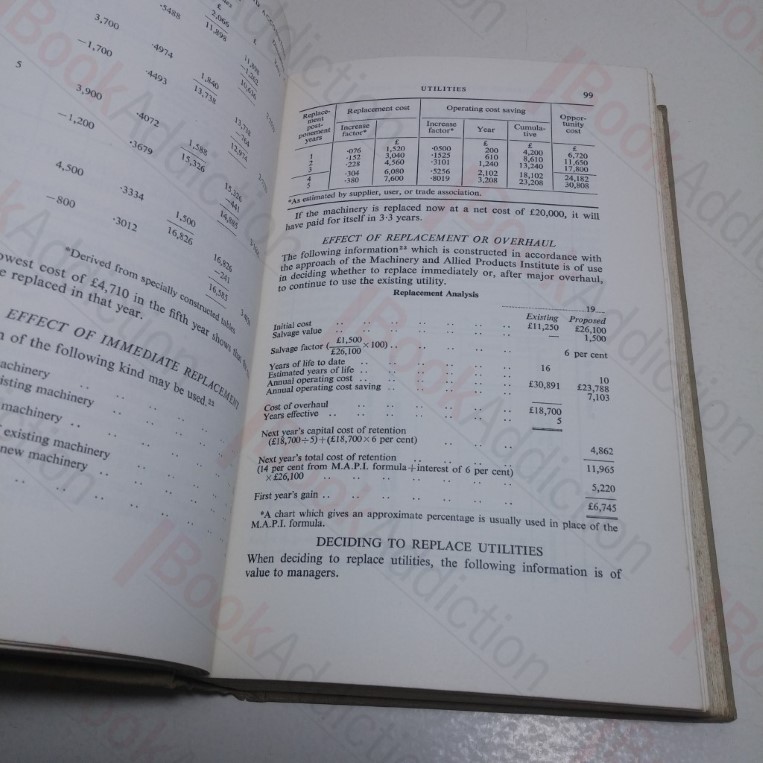 3,700
·5488
£
2,066
11,898
-1,700
·4974
·4493
1,840
13,738
5
3,900
·4072
-1,200
·3679
1,588
15,326
4,500
·3334
-800
·3012
1,500
16,826
16,826
-241
16,585
*Derived from specially constructed tables
owest cost of £4,710 in the fifth year shows that
e replaced in that year.
EFFECT OF IMMEDIATE REPLACEMENT
n of the following kind may be used.²²
achinery
isting machinery
machinery ..
existing machinery
new machinery ..
UTILITIES 99
Replace-ment post-ponement years Replacement cost Operating cost saving Oppor-tunity cost
Increase factor* Increase factor* Year Cumula-tive
£ £ £ £
1 ·076 1,520 ·0500 200 4,200 6,720
2 ·152 3,040 ·1525 610 8,610 11,650
3 ·228 4,560 ·3101 1,240 13,240 17,800
4 ·304 6,080 ·5256 2,102 18,102 24,182
5 ·380 7,600 ·8019 3,208 23,208 30,808
*As estimated by supplier, user, or trade association.
If the machinery is replaced now at a net cost of £20,000, it will
have paid for itself in 3·3 years.
EFFECT OF REPLACEMENT OR OVERHAUL
The following information²³ which is constructed in accordance with
the approach of the Machinery and Allied Products Institute is of use
in deciding whether to replace immediately or, after major overhaul,
to continue to use the existing utility.
Replacement Analysis
19
Existing Proposed
Initial cost .. .. .. .. .. .. £11,250 £26,100
Salvage value .. .. .. .. .. .. — 1,500
Salvage factor (£1,500/£26,100 × 100) .. .. .. .. .. 6 per cent
Years of life to date .. .. .. .. .. 16
Estimated years of life .. .. .. .. .. 10
Annual operating cost .. .. .. .. .. £30,891 £23,788
Annual operating cost saving .. .. .. .. 7,103
Cost of overhaul .. .. .. .. .. £18,700
Years effective .. .. .. .. .. .. 5
Next year's capital cost of retention
(£18,700÷5)+(£18,700×6 per cent) .. .. .. 4,862
Next year's total cost of retention .. .. .. 11,965
(14 per cent from M.A.P.I. formula+interest of 6 per cent)
×£26,100 .. .. .. .. .. .. 5,220
First year's gain .. .. .. .. .. .. £6,745
*A chart which gives an approximate percentage is usually used in place of the
M.A.P.I. formula.
DECIDING TO REPLACE UTILITIES
When deciding to replace utilities, the following information is of
value to managers.
BookAddiction